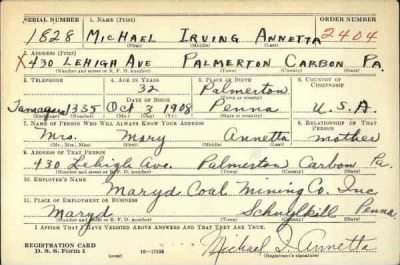 SERIAL NUMBER 1. NAME (Print) ORDER NUMBER
1828 MICHAEL IRVING ANNETTA 2404
(First) (Middle) (Last)
2. ADDRESS (Print)
X 430 LEHIGH AVE PALMERTON CARBON PA.
(Number and street or R. F. D. number) (Town) (County) (State)
3. TELEPHONE 4. AGE IN YEARS 5. PLACE OF BIRTH 6. COUNTRY OF CITIZENSHIP
32 Palmerton
DATE OF BIRTH (Town or county)
Tamaqua 1355 Oct 3 1908 Penna U.S.A.
(Exchange) (Number) (Mo.) (Day) (Yr.) (State or country)
7. NAME OF PERSON WHO WILL ALWAYS KNOW YOUR ADDRESS 8. RELATIONSHIP OF THAT PERSON
Mrs. Mary Annetta mother
(Mr., Mrs., Miss) (First) (Middle) (Last)
9. ADDRESS OF THAT PERSON
430 Lehigh Ave. Palmerton Carbon Pa.
(Number and street or R. F. D. number) (Town) (County) (State)
10. EMPLOYER'S NAME
Maryd Coal Mining Co. Inc.
11. PLACE OF EMPLOYMENT OR BUSINESS
Maryd Schuylkill Penna
(Number and street or R. F. D. number) (Town) (County) (State)
I AFFIRM THAT I HAVE VERIFIED ABOVE ANSWERS AND THAT THEY ARE TRUE.
REGISTRATION CARD
D. S. S. Form 1 (over) 16-17105 Michael I. Annetta